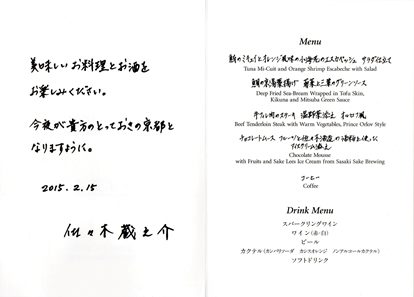 美味しいお料理とお酒を
お楽しみください。
今夜が貴方のとっておきの京都と
なりますように。
2015.2.15
佐々木蔵之介
Menu
鮪のミキュイとオレンジ風味の小海老のエスカベッシュ サラダ仕立て
Tuna Mi-Cuit and Orange Shrimp Escabeche with Salad
鯛の東寺湯葉揚げ 菊菜と三葉のグリーンソース
Deep Fried Sea-Bream Wrapped in Tofu Skin,
Kikuna and Mitsuba Green Sauce
牛フィレ肉のステーキ 温野菜添え オルロフ風
Beef Tenderloin Steak with Warm Vegetables, Prince Orlov Style
チョコレートムース フルーツと佐々木酒造の酒粕を使った
アイスクリーム添え
Chocolate Mousse
with Fruits and Sake Lees Ice Cream from Sasaki Sake Brewing
コーヒー
Coffee
Drink Menu
スパークリングワイン
ワイン(赤・白)
ビール
カクテル(カンパリソーダ カシスオレンジ ノンアルコールカクテル)
ソフトドリンク